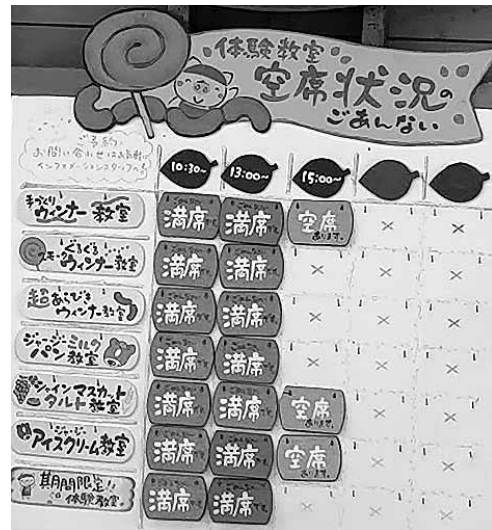 体験教室
空席状況の
ごあんない
ご予約
お問い合わせはお気軽に
インフォメーションスタッフへ
10:30~ 13:00~ 15:00~
手づくりウィンナー教室 満席 満席 空席あります。 × ×
ぐるぐるスモークウィンナー教室 満席です 満席です × × ×
超あらびきウィンナー教室 満席です 満席です × × ×
ジャージーミルクパン教室 満席 満席 × × ×
シャインマスカットタルト教室 満席です 満席です 空席あります。 × ×
ジャージーアイスクリーム教室 満席です 満席です 空席あります。 × ×
期間限定!!体験教室 満席です 満席です × × ×